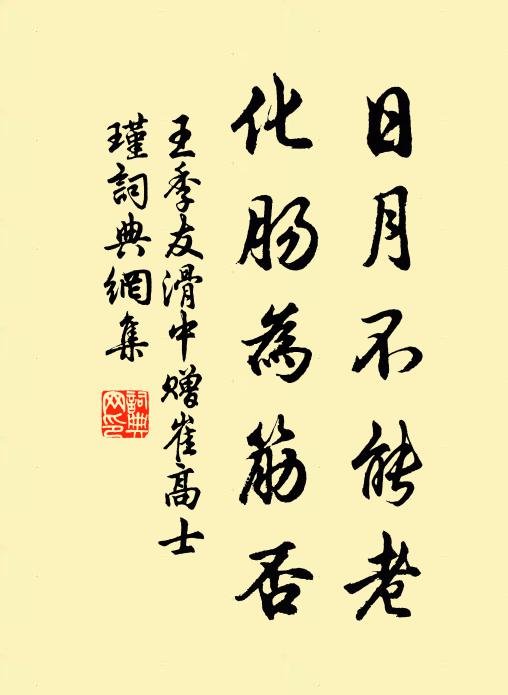 日月不能老
化肠為筋否
王季友滑中赠崔高士
瑾詞典網集
詞典
网印